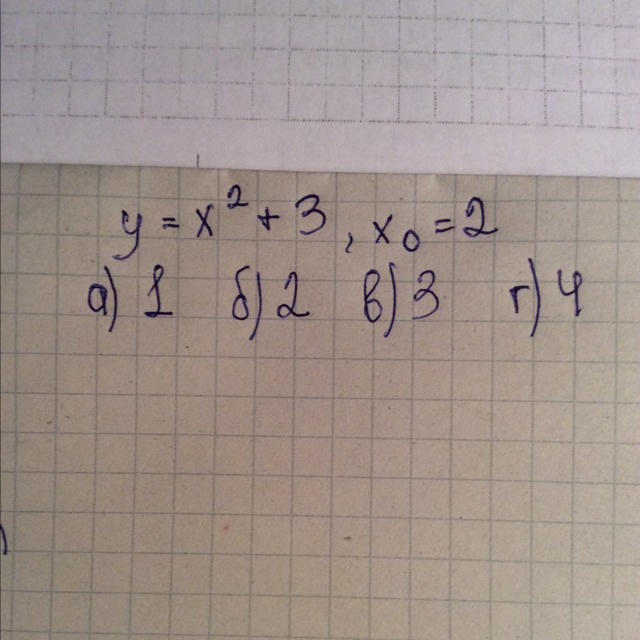 y = x² + 3, x₀ = 2
а) 1 б) 2 в) 3 г) 4